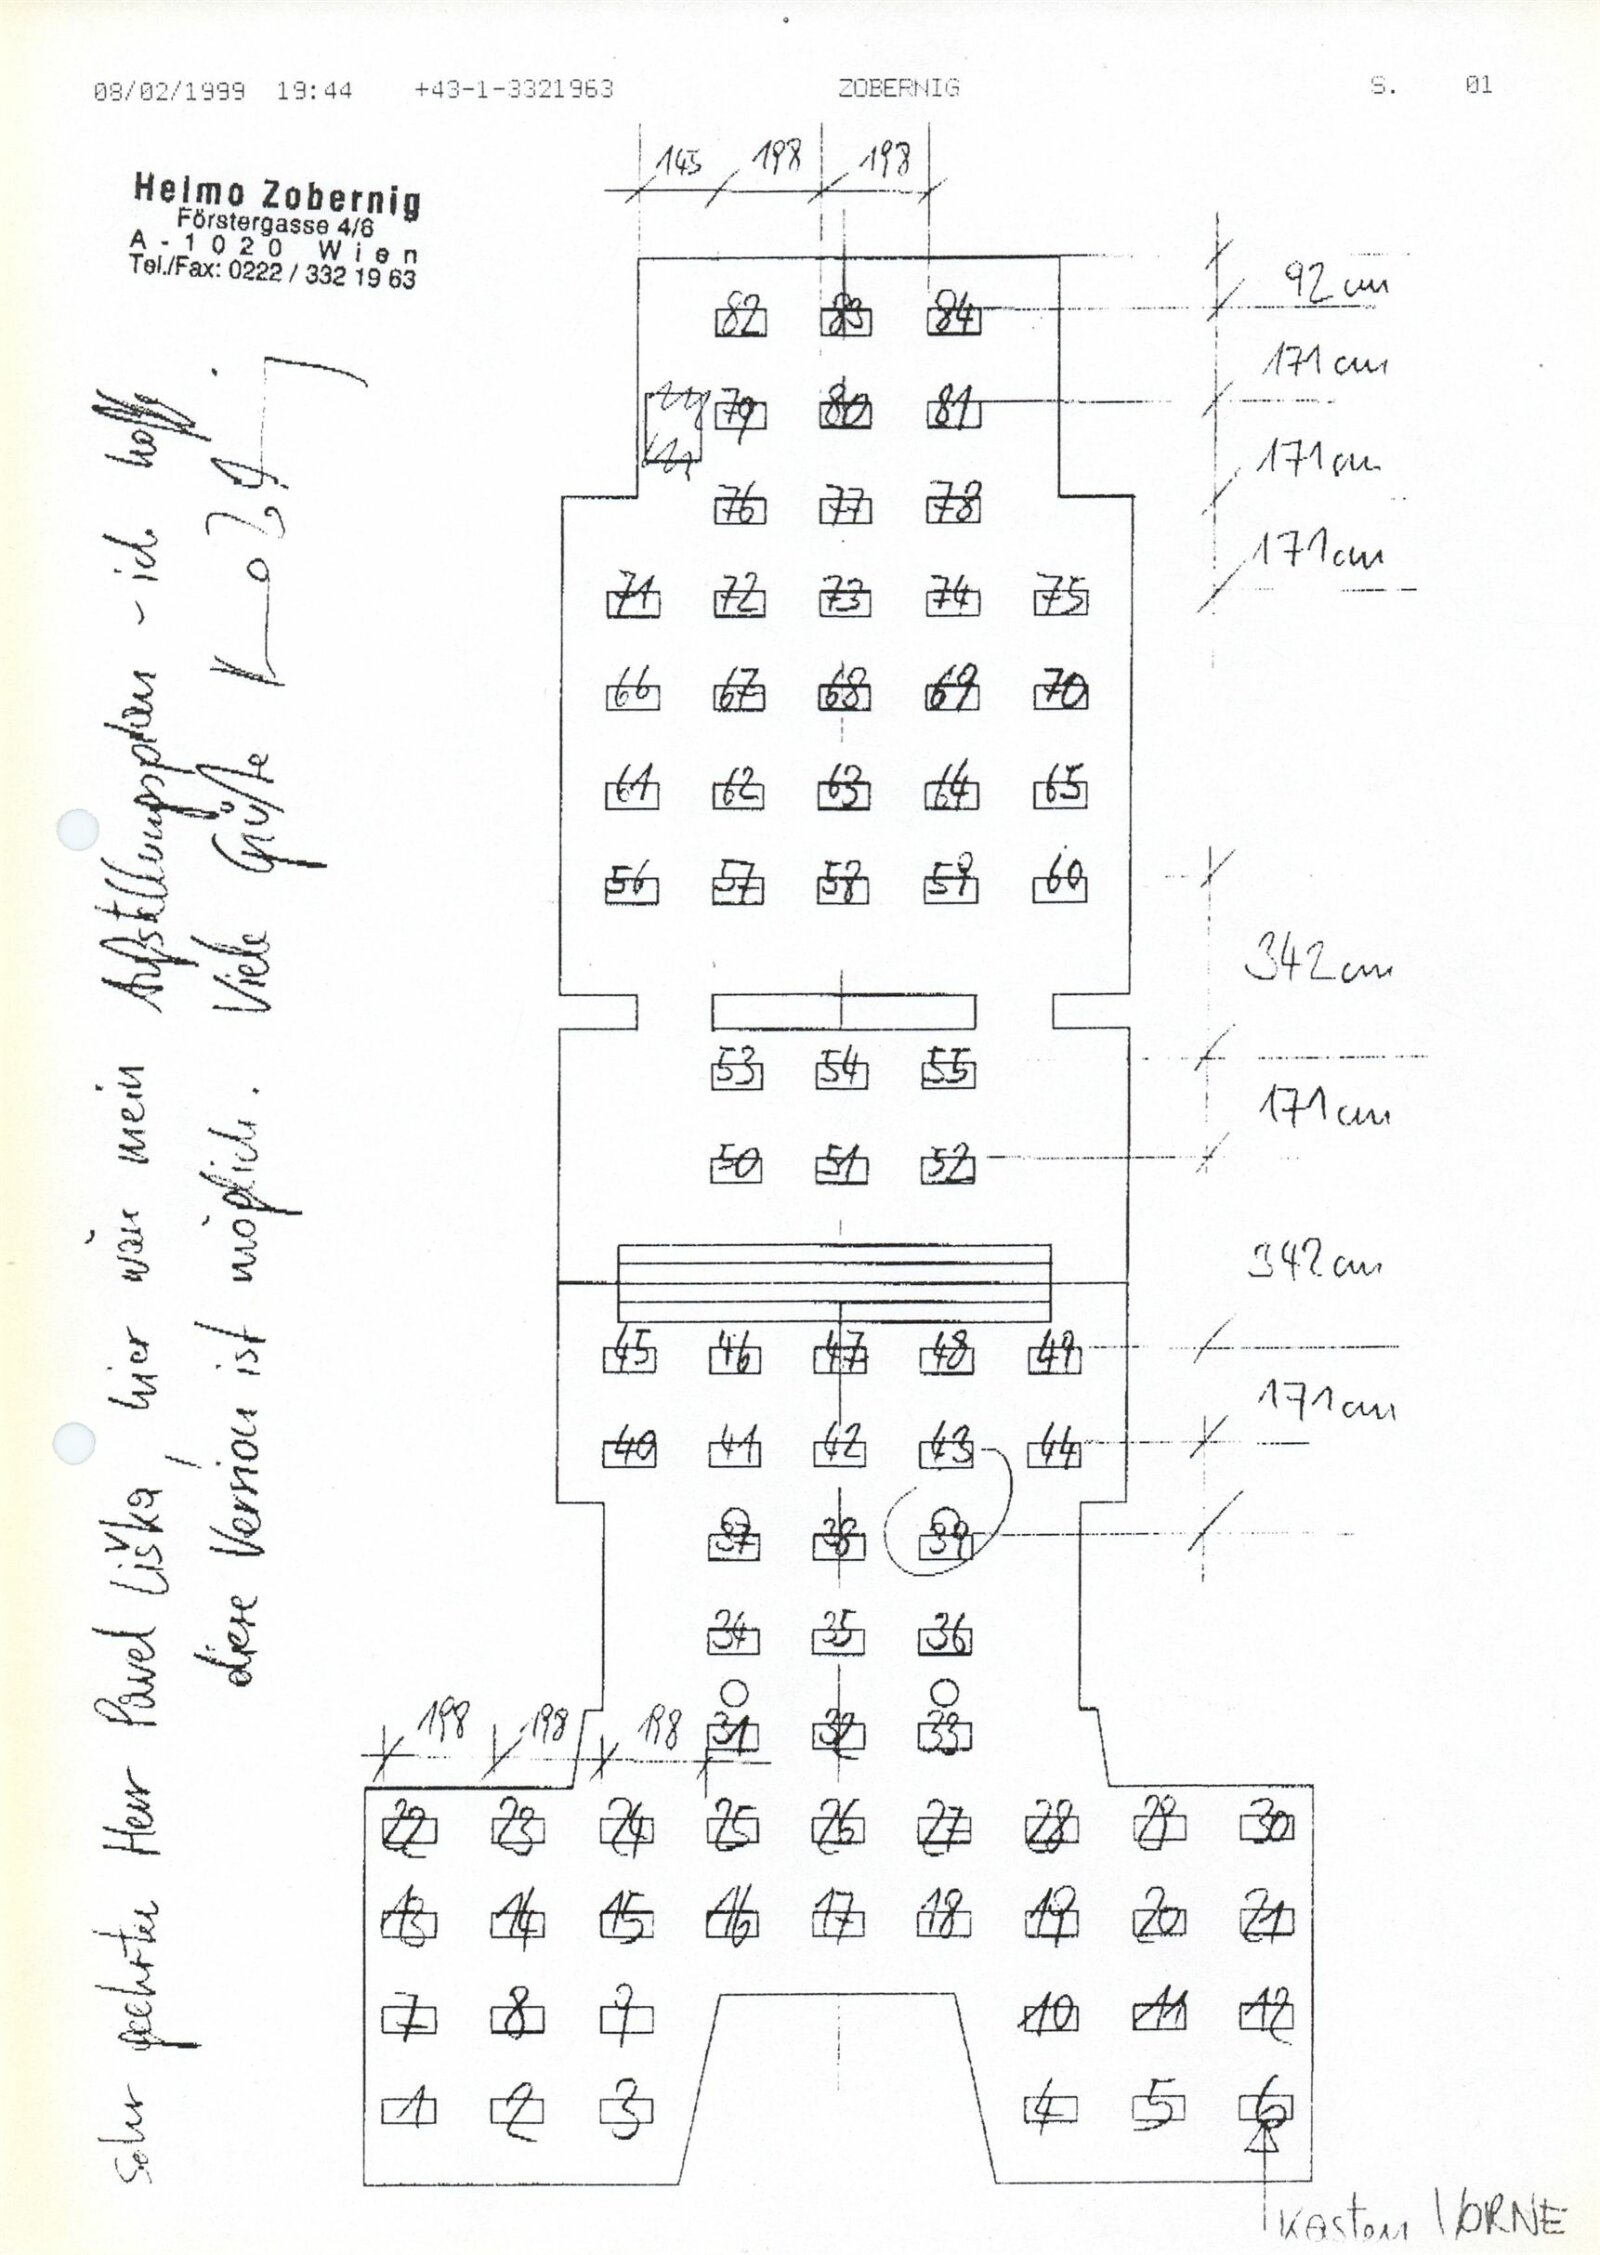 08/02/1999 19:44 +43-1-3321963 ZOBERNIG S. 01
Heimo Zobernig
Förstergasse 4/6
A - 1020 Wien
Tel./Fax: 0222 / 332 19 63
145 198 198
82 83 84
92 cm
79 80 81
171 cm
76 77 78
171 cm
71 72 73 74 75
171 cm
66 67 68 69 70
61 62 63 64 65
56 57 58 59 60
342 cm
53 54 55
171 cm
50 51 52
342 cm
45 46 47 48 49
171 cm
40 41 42 43 44
37 38 39
34 35 36
198 198 198
31 32 33
22 23 24 25 26 27 28 29 30
13 14 15 16 17 18 19 20 21
7 8 9 10 11 12
1 2 3 4 5 6
Kasten VORNE
Sehr geehrter Herr Pavel Liška! hier wär mein Aufstellungsplan - ich hoffe
diese Version ist möglich. Viele Grüße